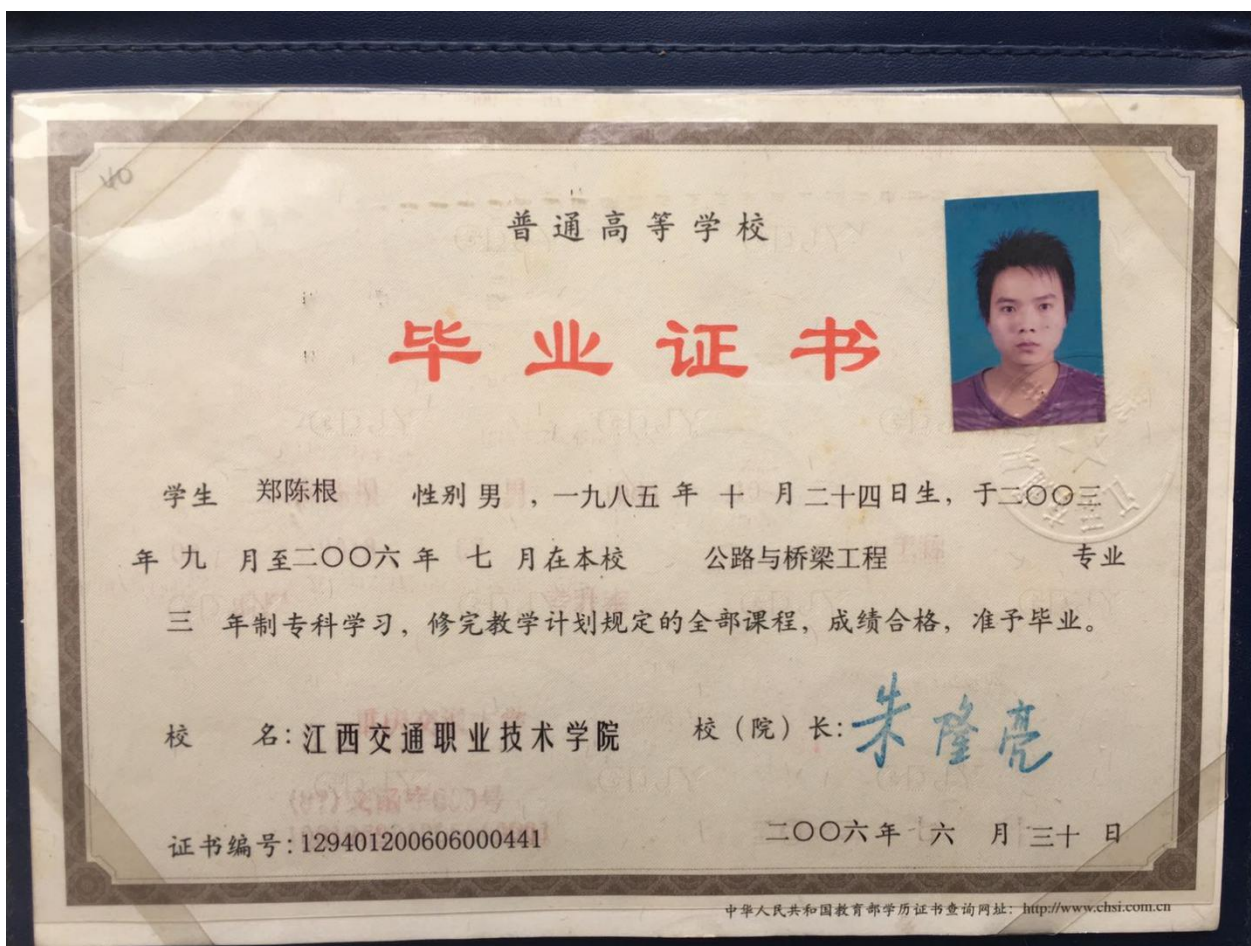 普通高等学校
毕业证书
学生 郑陈根 性别 男 ，一九八五 年 十 月 二十四 日生，于二〇〇三
年 九 月至二〇〇六 年 七 月在本校 公路与桥梁工程 专业
三 年制专科学习，修完教学计划规定的全部课程，成绩合格，准予毕业。
校 名：江西交通职业技术学院 校（院）长：朱隆亮
证书编号：129401200606000441 二〇〇六 年 六 月 三十 日
中华人民共和国教育部学历证书查询网址：http://www.chsi.com.cn